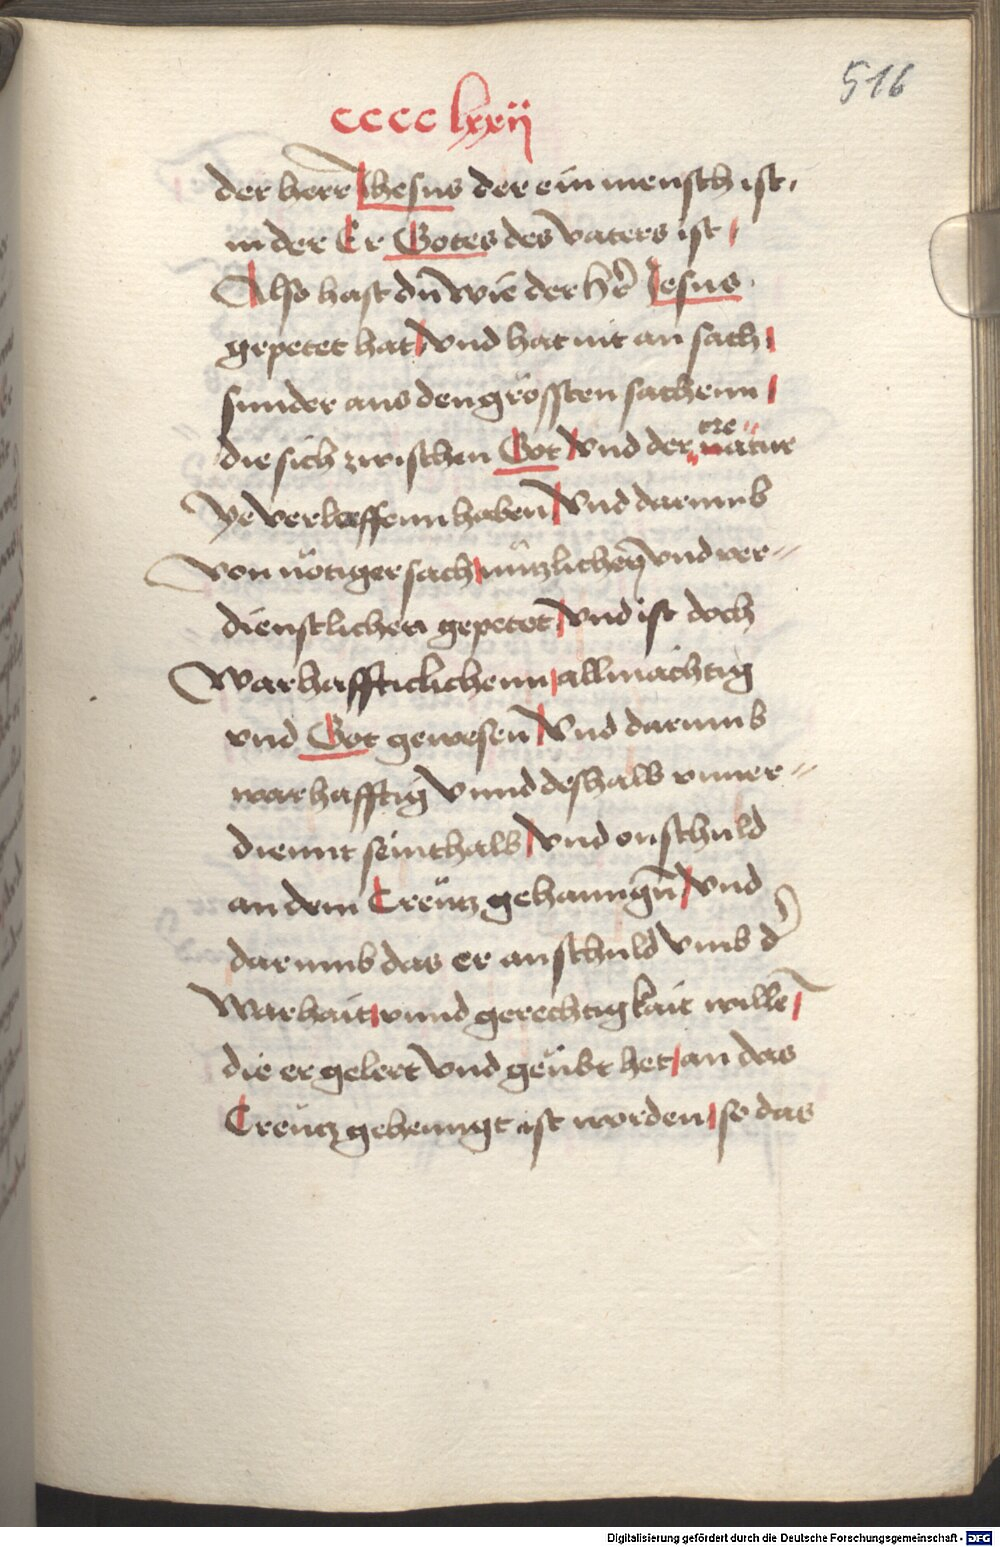 516
cccclxxij
der herr Jhesus der ein mensch ist,
in der Er Gotes des vaters ist
Also hast dü wie der hr̃ Jesus
gepetet hat vnd hat nit an sach
sunder aus den grössten sachenn
die sich zwischen Got vnd der natur
cre
ye verlaffenn haben vnd darumb
von nötiger sach nützlichen̄ vnd ver-
dienstlichen gepetet vnd ist doch
warhafftiklichenn allmächtig
vnd Got gewesen vnd darumb
warhafftig vnnd deshalb vnuer-
diennt seinthalb vnd onschuld
an dem Creütz gehanngn̄ vnd
darumb das er anschuld vmb d̛
warhait vnnd gerechtigkait willē
die er gelert vnd geübt het an das
Creütz gehenngt ist worden so das
Digitalisierung gefördert durch die Deutsche Forschungsgemeinschaft - DFG